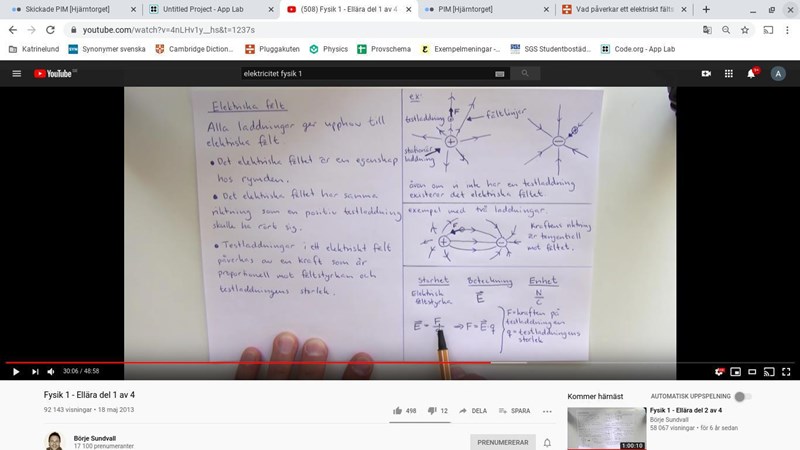 Skickade PIM [Hjärntorget]
Untitled Project - App Lab
(508) Fysik 1 - Ellära del 1 av 4
PIM [Hjärntorget]
Vad påverkar ett elektriskt fälts
youtube.com/watch?v=4nLHv1y__hs&t=1237s
Katrinelund
Synonymer svenska
Cambridge Diction...
Pluggakuten
Physics
Provschema
Exempelmeningar -...
SGS Studentbostäd...
Code.org - App Lab
YouTube
elektricitet fysik 1
A
Elektriska fält
Alla laddningar ger upphov till
elektriska fält.
• Det elektriska fältet är en egenskap
hos rymden.
• Det elektriska fältet har samma
riktning som en positiv testladdning
skulle ha rört sig.
• Testladdningar i ett elektriskt fält
påverkas av en kraft som är
proportionell mot fältstyrkan och
testladdningens storlek.
ex:
testladdning
F
fältlinjer
stationär
laddning
+
−
även om vi inte har en testladdning
existerar det elektriska fältet.
exempel med två laddningar.
F
+
−
Kraftens riktning
är tangentiell
mot fältet.
Storhet Beteckning Enhet
Elektrisk
fältstyrka
E
N
C
E = F ⇒ F = E·q
F = kraften på
testladdningen
q = testladdningens
storlek
30:06 / 48:58
Fysik 1 - Ellära del 1 av 4
92 143 visningar • 18 maj 2013
498
12
DELA
SPARA
Börje Sundvall
17 100 prenumeranter
PRENUMERERAR
Kommer härnäst
AUTOMATISK UPPSPELNING
Fysik 1 - Ellära del 2 av 4
Börje Sundvall
58 067 visningar • för 6 år sedan
1:00:10